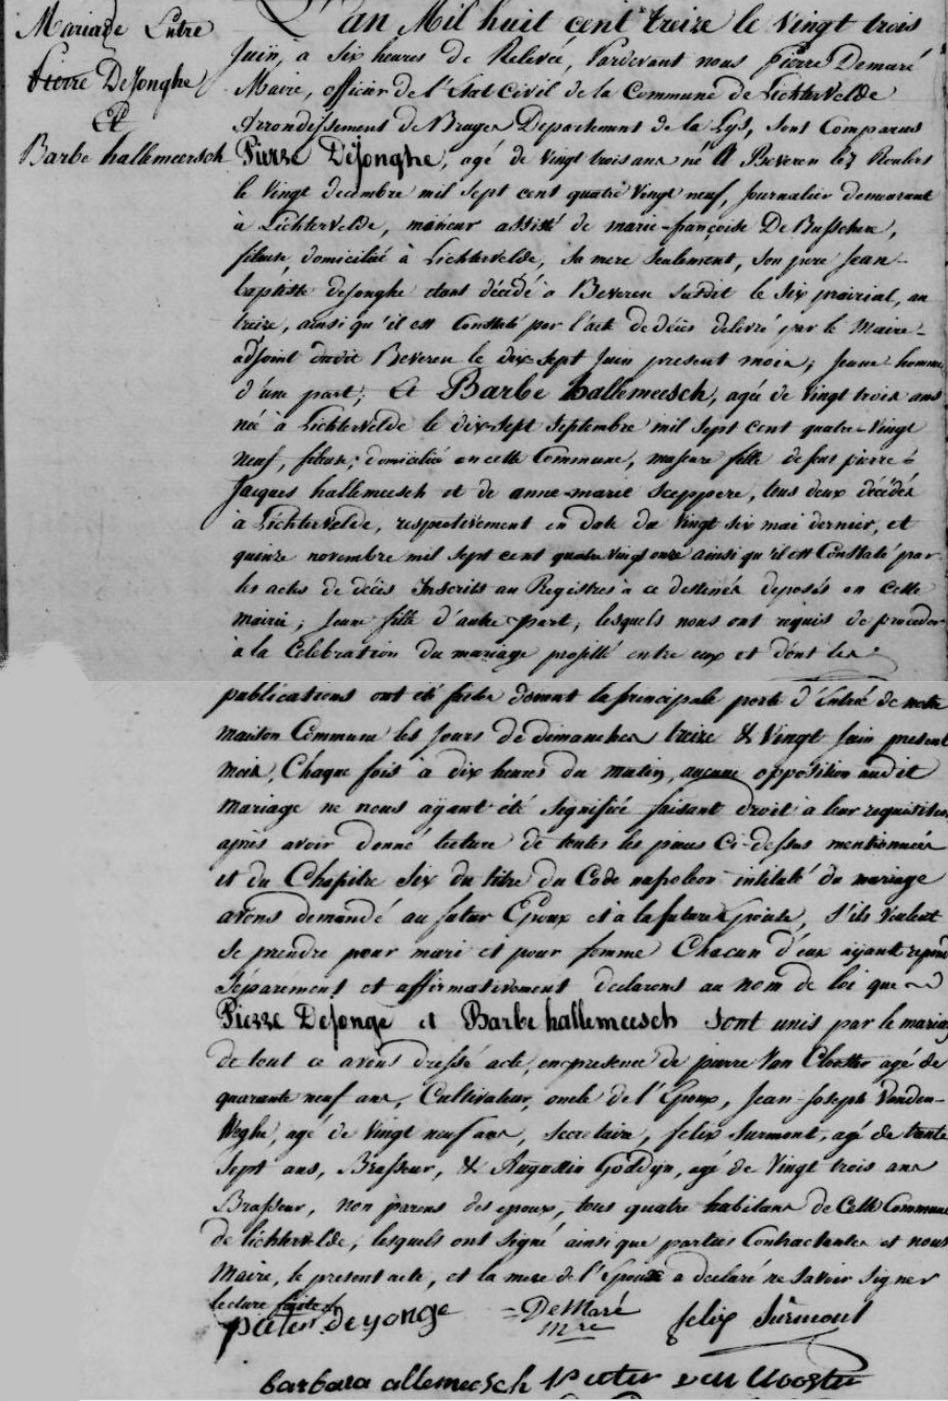 Mariage Entre
Pierre DeJonghe
Et
Barbe hallemeersch
L'an Mil huit cent treize le vingt trois
Juin, a Six heures de Relevée, Pardevant nous Pierre Demaré
Maire, officier de l'Etat Civil de la Commune de Lichtervelde
Arrondissement de Bruges Departement de la Lys, sont Comparus
Pierre DeJonghe, agé de vingt trois ans né à Beveren lez Roulers
le vingt decembre mil sept cent quatre vingt neuf, Journalier demeurant
à Lichtervelde, majeur assisté de marie-françoise De Busschere,
fileuse, domiciliée à Lichtervelde, sa mere seulement, son pere Jean-
baptiste deJonghe etant décédé à Beveren susdit le Six prairial, an
treize, ainsi qu'il est Constaté par l'acte de décès delivré par le Maire-
adjoint dudit Beveren le dix-sept Juin present mois; Jeune homme
d'une part; Et Barbe hallemeesch, agée de vingt trois ans
née à Lichtervelde le dix-sept septembre mil sept cent quatre-vingt
neuf, fileuse, domiciliée en cette Commune, majeure fille de feu pierre-
Jacques hallemeesch et de anne-marie sceppere, tous deux décédés
à Lichtervelde, respectivement en date du vingt six mai dernier, et
quinze novembre mil sept cent quatre vingt onze ainsi qu'il est Constaté par
les actes de décès Inscrits au Registres à ce destinés deposés en cette
mairie; Jeune fille d'autre part, lesquels nous ont requis de proceder
à la Celebration du mariage projetté entre eux et dont les
publications ont été faites devant la principale porte d'Entrée de notre
maison Commune les Jours de dimanches treize & vingt Juin present
mois, Chaque fois à dix heures du matin, aucune opposition audit
mariage ne nous ayant été signifiée faisant droit à leur requisition
après avoir donné lecture de toutes les pieces Ci-dessus mentionnées
et du Chapitre Six du titre du Code napoleon intitulé du mariage
avons demandé au futur Epoux et à la future Epouse, s'ils veulent
se prendre pour mari et pour femme Chacun d'eux ayant repondu
séparement et affirmativement declarons au nom de loi que
Pierre DeJonge et Barbe hallemeesch sont unis par le mariage
de tout ce avons dressé acte, en presence de pierre Van Clooster agé de
quarante neuf ans, Cultivateur, oncle de l'Epoux, Jean-Joseph Vanden-
Weghe, agé de vingt neuf ans, secretaire, felix surmont, agé de trente
Sept ans, Brasseur, & Augustin Goddyn, agé de vingt trois ans
Brasseur, non parens des epoux, tous quatre habitans de Cette Commune
de lichtervelde, lesquels ont signé ainsi que parties Contractantes et nous
Maire, le present acte, et la mere de l'Epoux a declaré ne savoir signer
lecture faite
pieter deyonge =DeMaré felix Surmont
mre
barbara allemeesch Pieter van Clooster